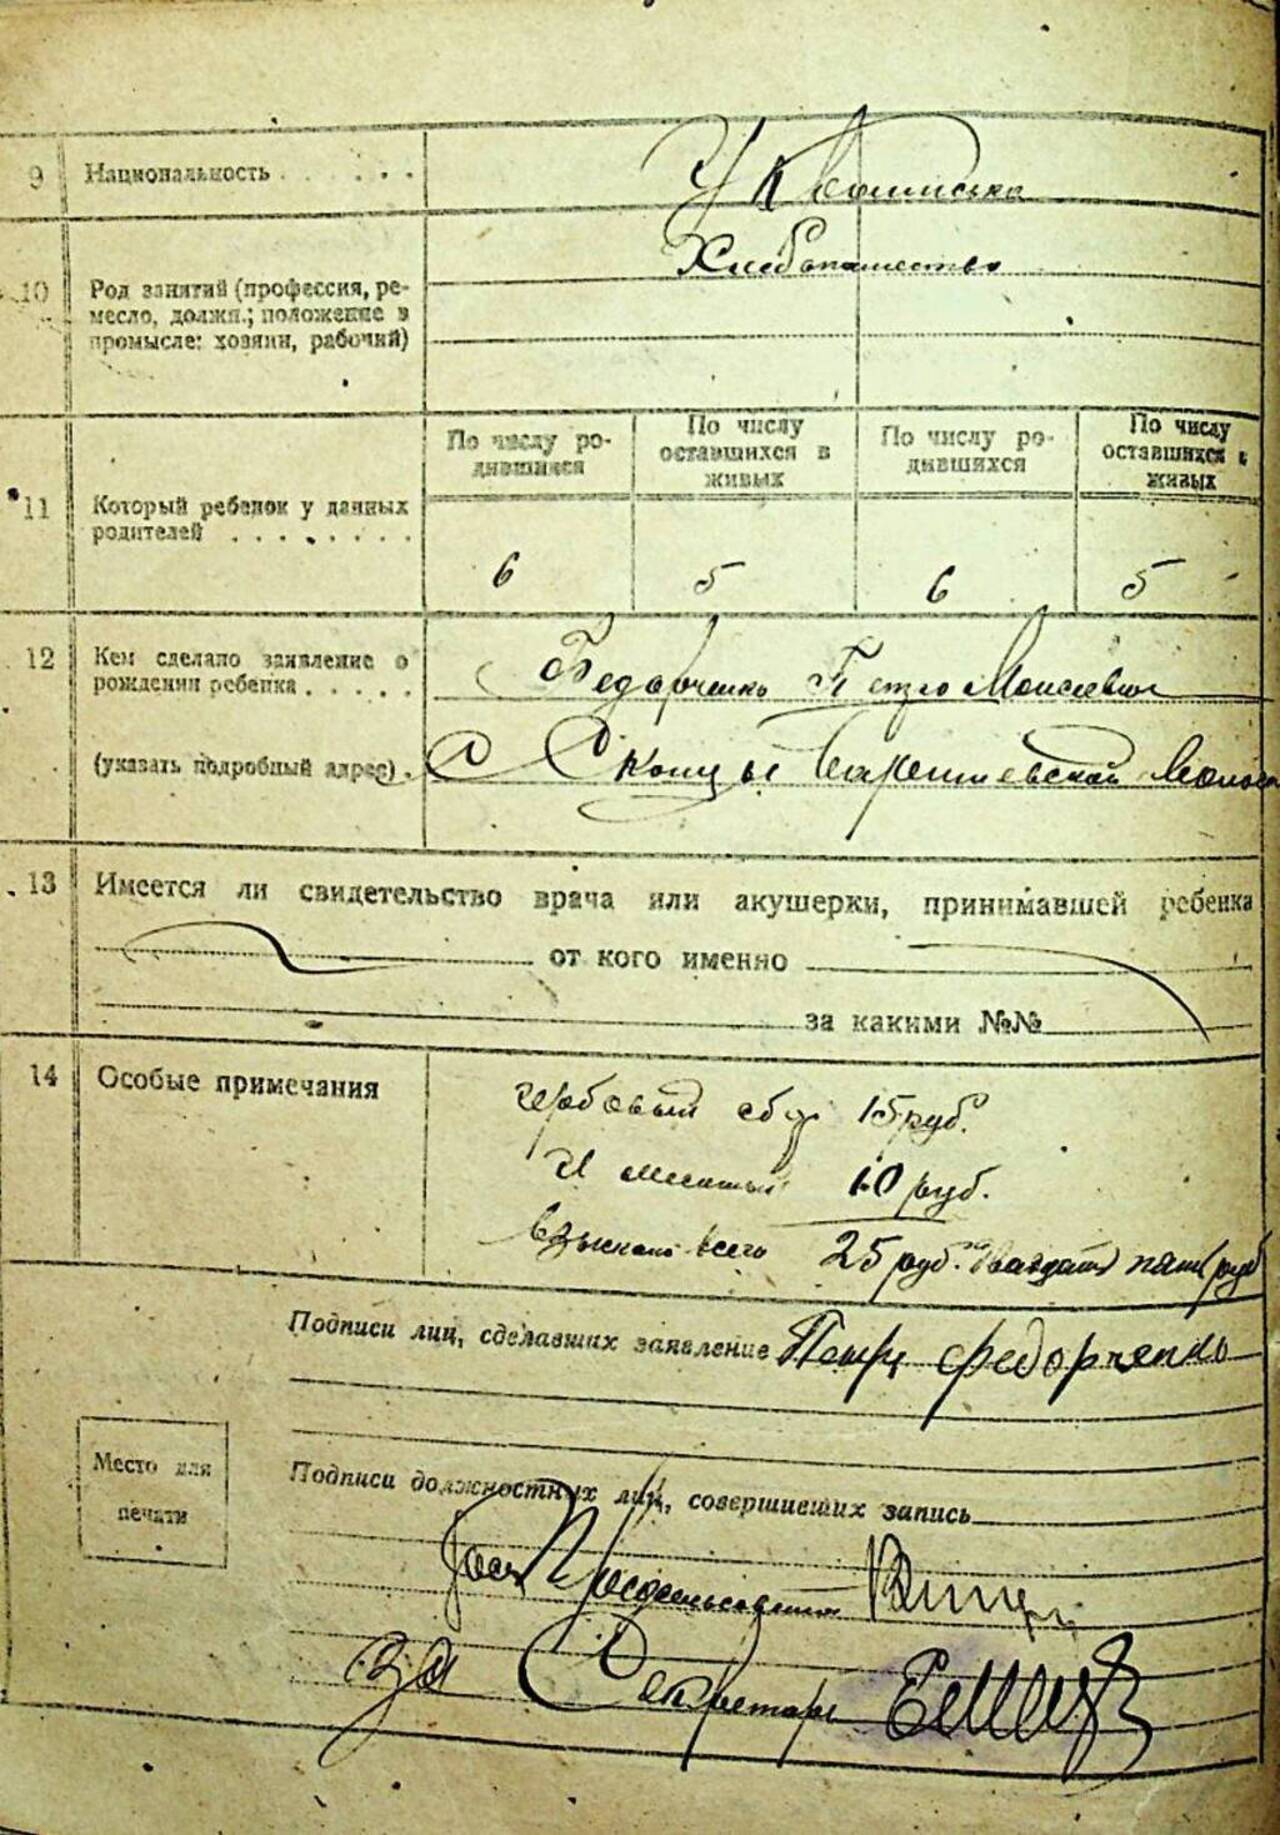 9 Национальность
10 Род занятий (профессия, ре-
месло, должн.; положение в
промысле: хозяин, рабочий)
Хлебопашество
11 Который ребенок у данных
родителей
По числу ро-
дившихся
По числу
оставшихся в
живых
По числу ро-
дившихся
По числу
оставшихся в
живых
6 5 6 5
12 Кем сделано заявление о
рождении ребенка
Федорченко Петро Моисеевич
(указать подробный адрес).
С Скопцы
13 Имеется ли свидетельство врача или акушерки, принимавшей ребенка
от кого именно
за какими №№
14 Особые примечания
гербовый сбор 15 руб.
и местный 10 руб.
взыскано всего 25 руб. двадцать пять руб
Подписи лиц, сделавших заявление Петр Федорченко
Место для
печати
Подписи должностных лиц, совершивших запись
за Секретарь